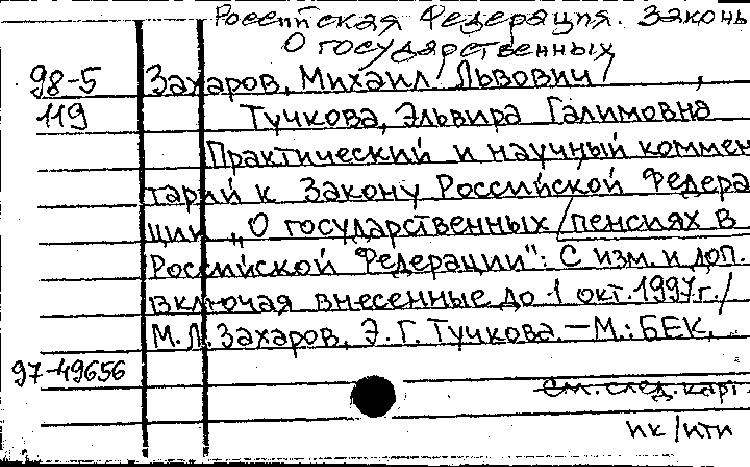 Российская Федерация. Законы
О государственных
98-5 Захаров, Михаил Львович,
119 Тучкова, Эльвира Галимовна
Практический и научный коммен
тарий к Закону Российской Федера
ции „О государственных пенсиях в
Российской Федерации": С изм. и доп.
включая внесенные до 1 окт. 1997 г. /
М. Л. Захаров, Э. Г. Тучкова. — М.: БЕК,
97-49656
см. след. карт
пк/итп